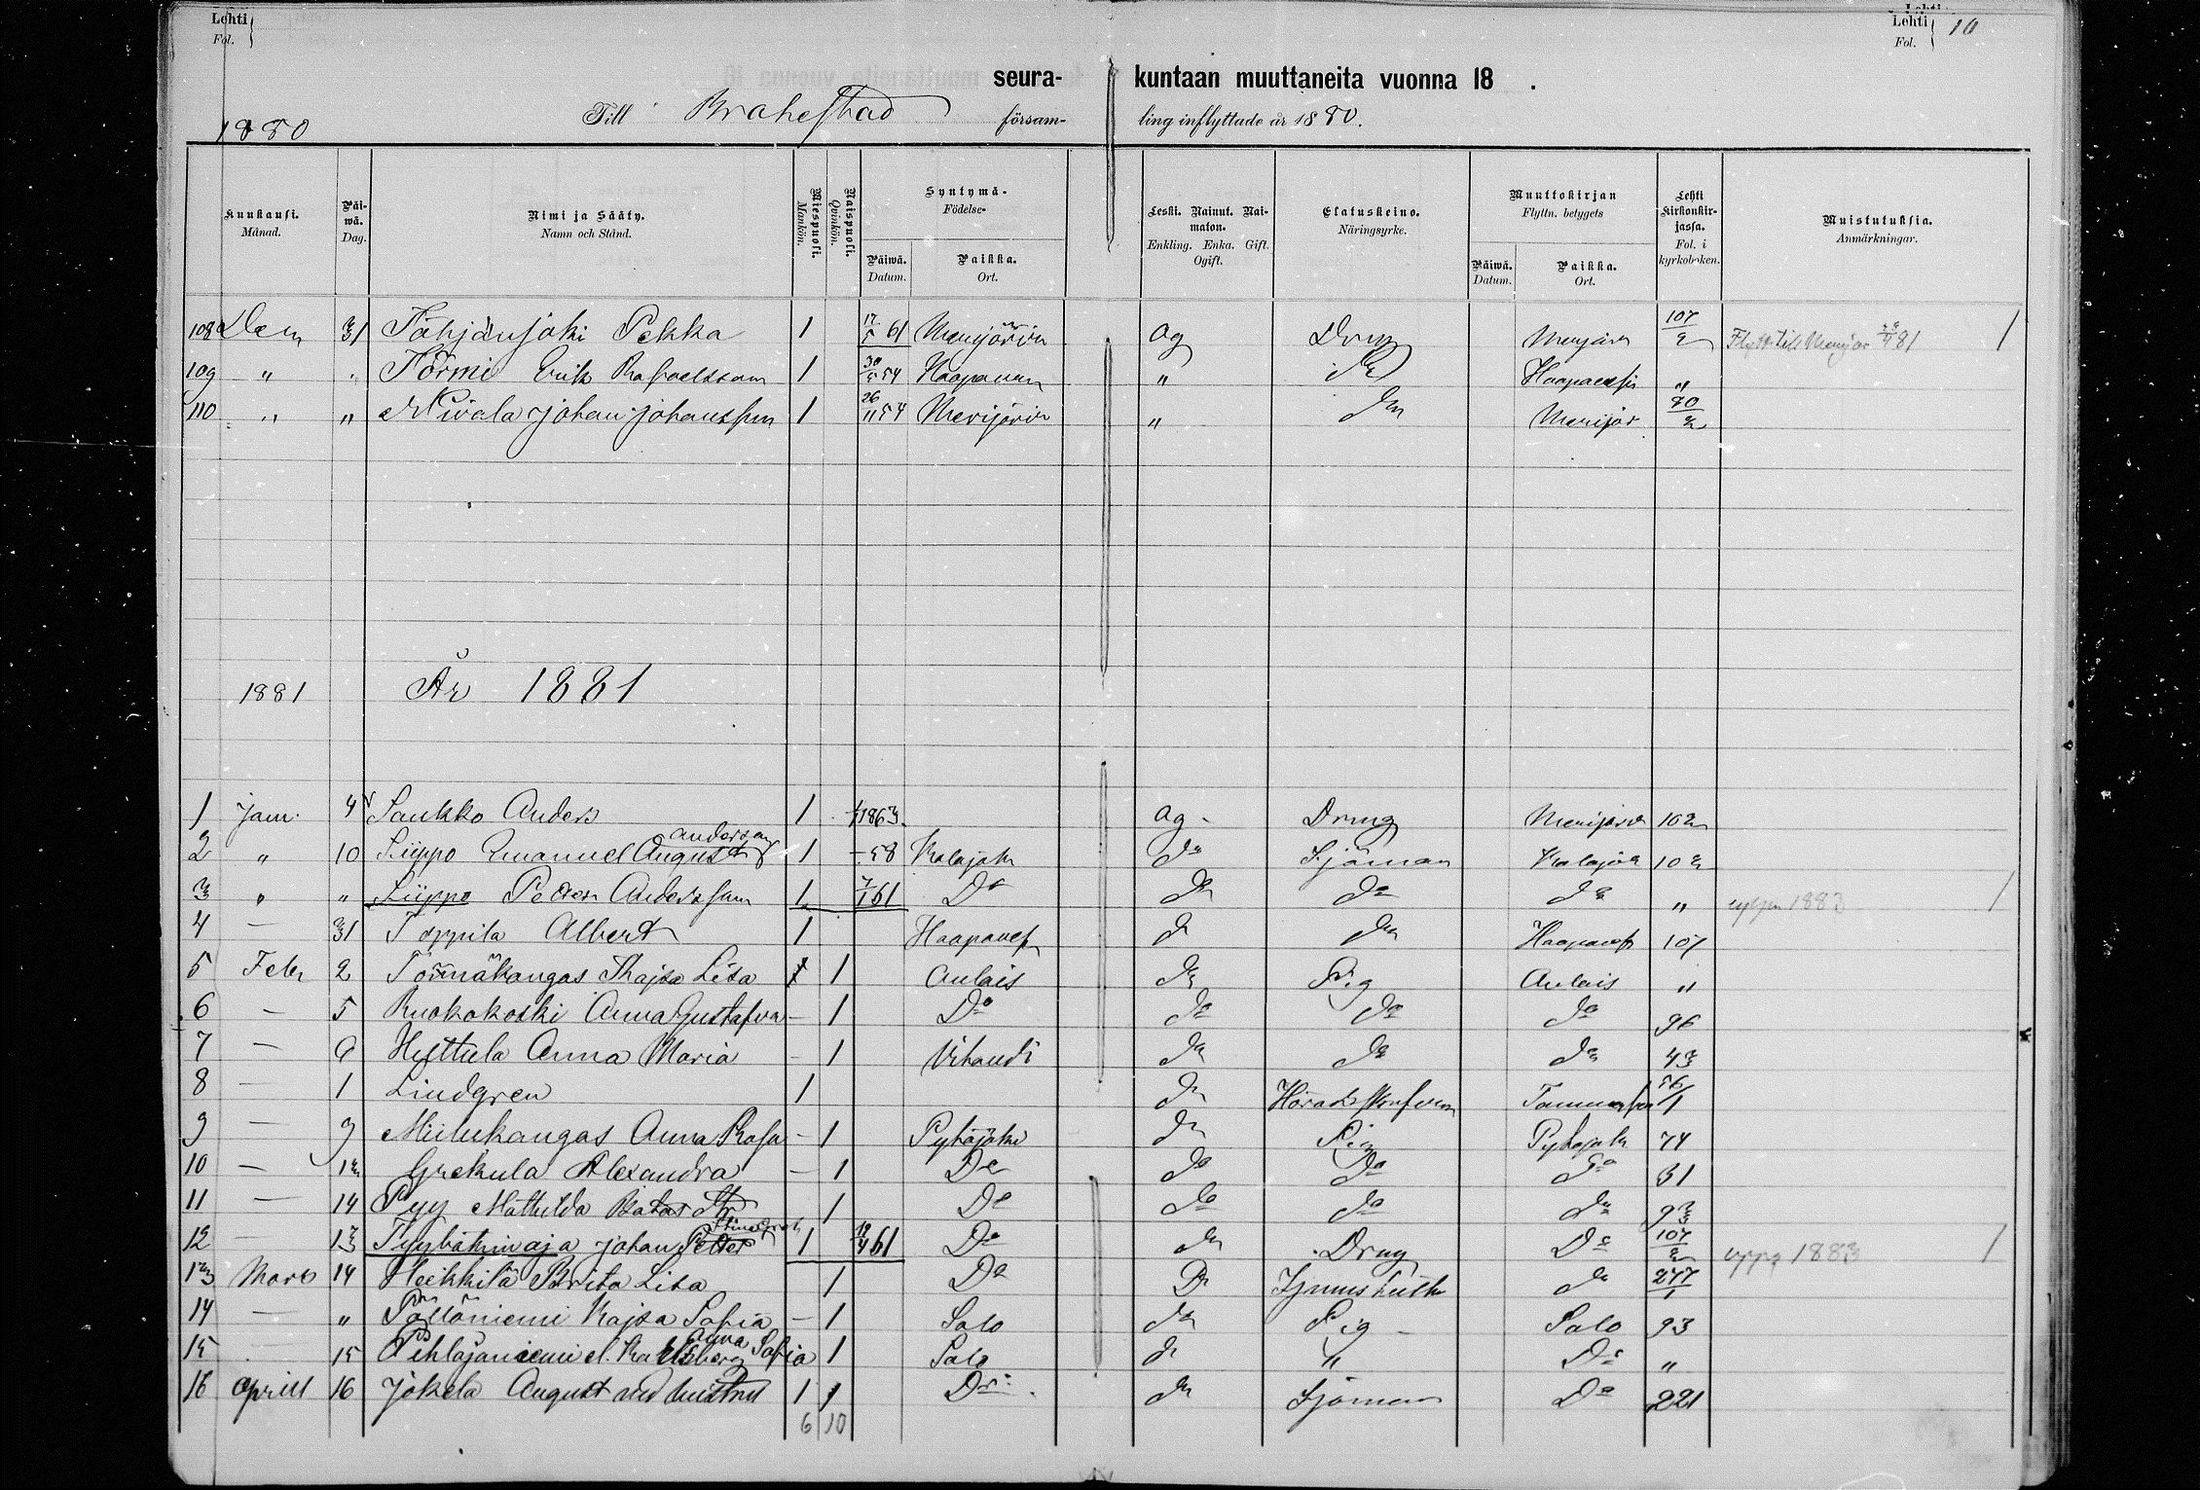 Lehti
Fol.
Lehti 10
Fol.
seura- kuntaan muuttaneita vuonna 18 .
1880 Till Brahestad försam- ling inflyttade år 1880.
Kuukausi. Månad. Päiwä. Dag. Nimi ja Sääty. Namn och Stånd. Miespuoli. Mankön. Naispuoli. Qvinkön. Syntymä- Födelse- Päiwä. Datum. Paikka. Ort. Leski. Nainut. Naimaton. Enkling. Enka. Gift. Ogift. Elatuskeino. Näringsyrke. Muuttokirjan Flyttn. betygets Päiwä. Datum. Paikka. Ort. Lehti kirkonkirjassa. Fol. i kyrkoboken. Muistutuksia. Anmärkningar.
108 Dec 31 Pekka 1 17/5 61 Merijärvi og Dräng Merijärvi 107/2 Flytt till Merijär 81 /
109 " " Törmi Erik Rafaelsson 1 30/5 54 Haapavesi " Do Haapavesi "
110 " " Niwala Johan Johansson 1 26/11 54 Merijärvi " do Merijär 70/2
1881 År 1881
1 Jan. 4 Saukko Anders 1 1863. og. Dräng Merijärvi 102
2 " 10 Siippo Emanuel August Andersson 1 - 58 Kalajoki do Sjöman Kalajoki 102
3 " " Siippo Petter Andersson 1 7/1 61 Do do do do " 1883 /
4 — 31 Toppila Albert 1 Haapavesi do do Haapavesi 107
5 Febr 2 Törmäkangas Kajsa Lisa 1 Aulais do Pig Aulais "
6 — 5 Ruokokoski Anna Gustafva — 1 Do do do do 96
7 — 9 Hyttula Anna Maria — 1 Vihandi do do do 43
8 — 1 Lindgren 1 do 56/1
9 — 9 Miilukangas Anna — 1 Pyhäjoki do Pig Pyhäjoki 74
10 — 12 Grekula Alexandra — 1 Do do Do do 31
11 — 14 Pyy Mathilda 1 Do do do do 93
12 — 13 Johan Petter 1 19/4 61 Do do Dräng Do 107/2 uppg 1883 /
13 Mars 14 Heikkilä Brita Lisa 1 Do Do do 277/1
14 — " Pöllöniemi Kajsa Sofia — 1 Salo do Pig — Salo 93
15 15 Pihlajaniemi el. Karlsberg Anna Sofia 1 Salo do " Do "
16 April 16 Jokela August med hustru 1 1 Do do Sjöman Do 221
6 10